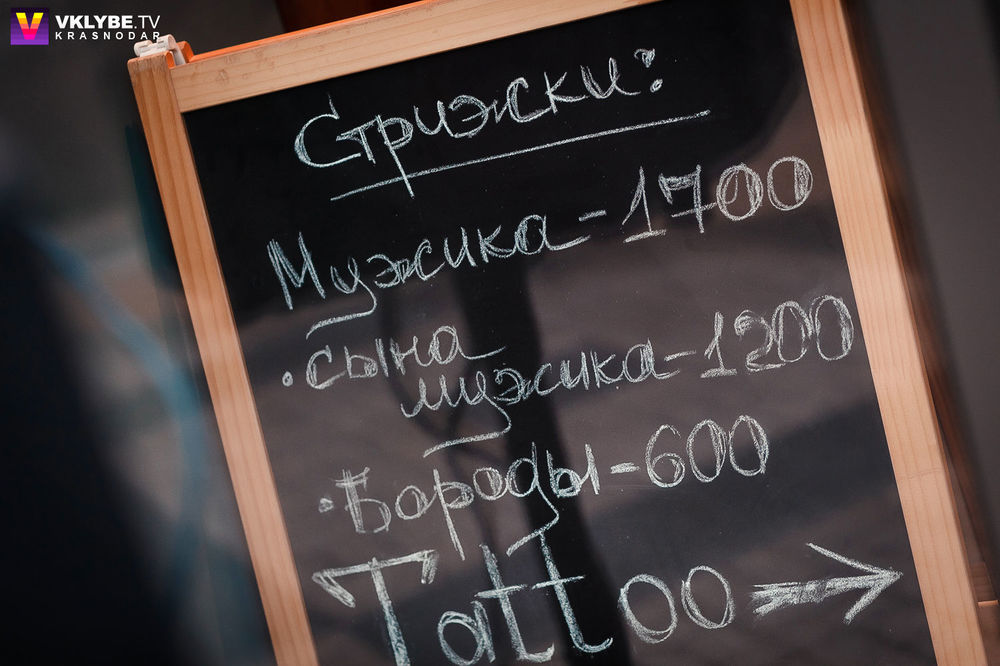 VKLYBE.TV
KRASNODAR
Стрижки:
Мужика - 1700
• сына
мужика - 1200
• Бороды - 600
Tattoo →